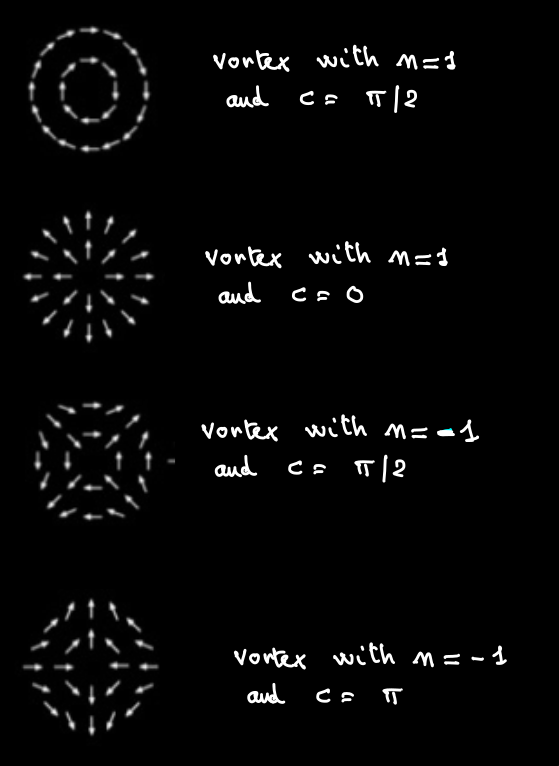 vortex with n=1
and c = π/2
vortex with n=1
and c = 0
vortex with n=-1
and c = π/2
vortex with n=-1
and c = π